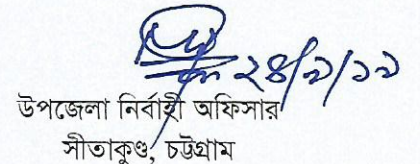 ২৪/৯/১৯
উপজেলা নির্বাহী অফিসার
সীতাকুণ্ড, চট্টগ্রাম